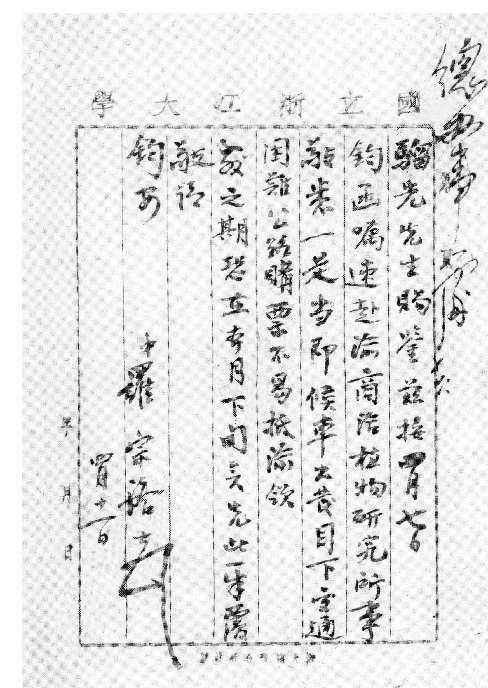 國立浙江大學
騮先先生賜鑒茲接四月七日
鈞函囑速赴渝商洽植物研究所事
敬悉一是当即候車出發目下交通
困難公路購票不易抵渝欲
之期恐在本月下旬矣先此奉覆
敬請
鈞安
羅宗洛
四月十一日
年 月 日